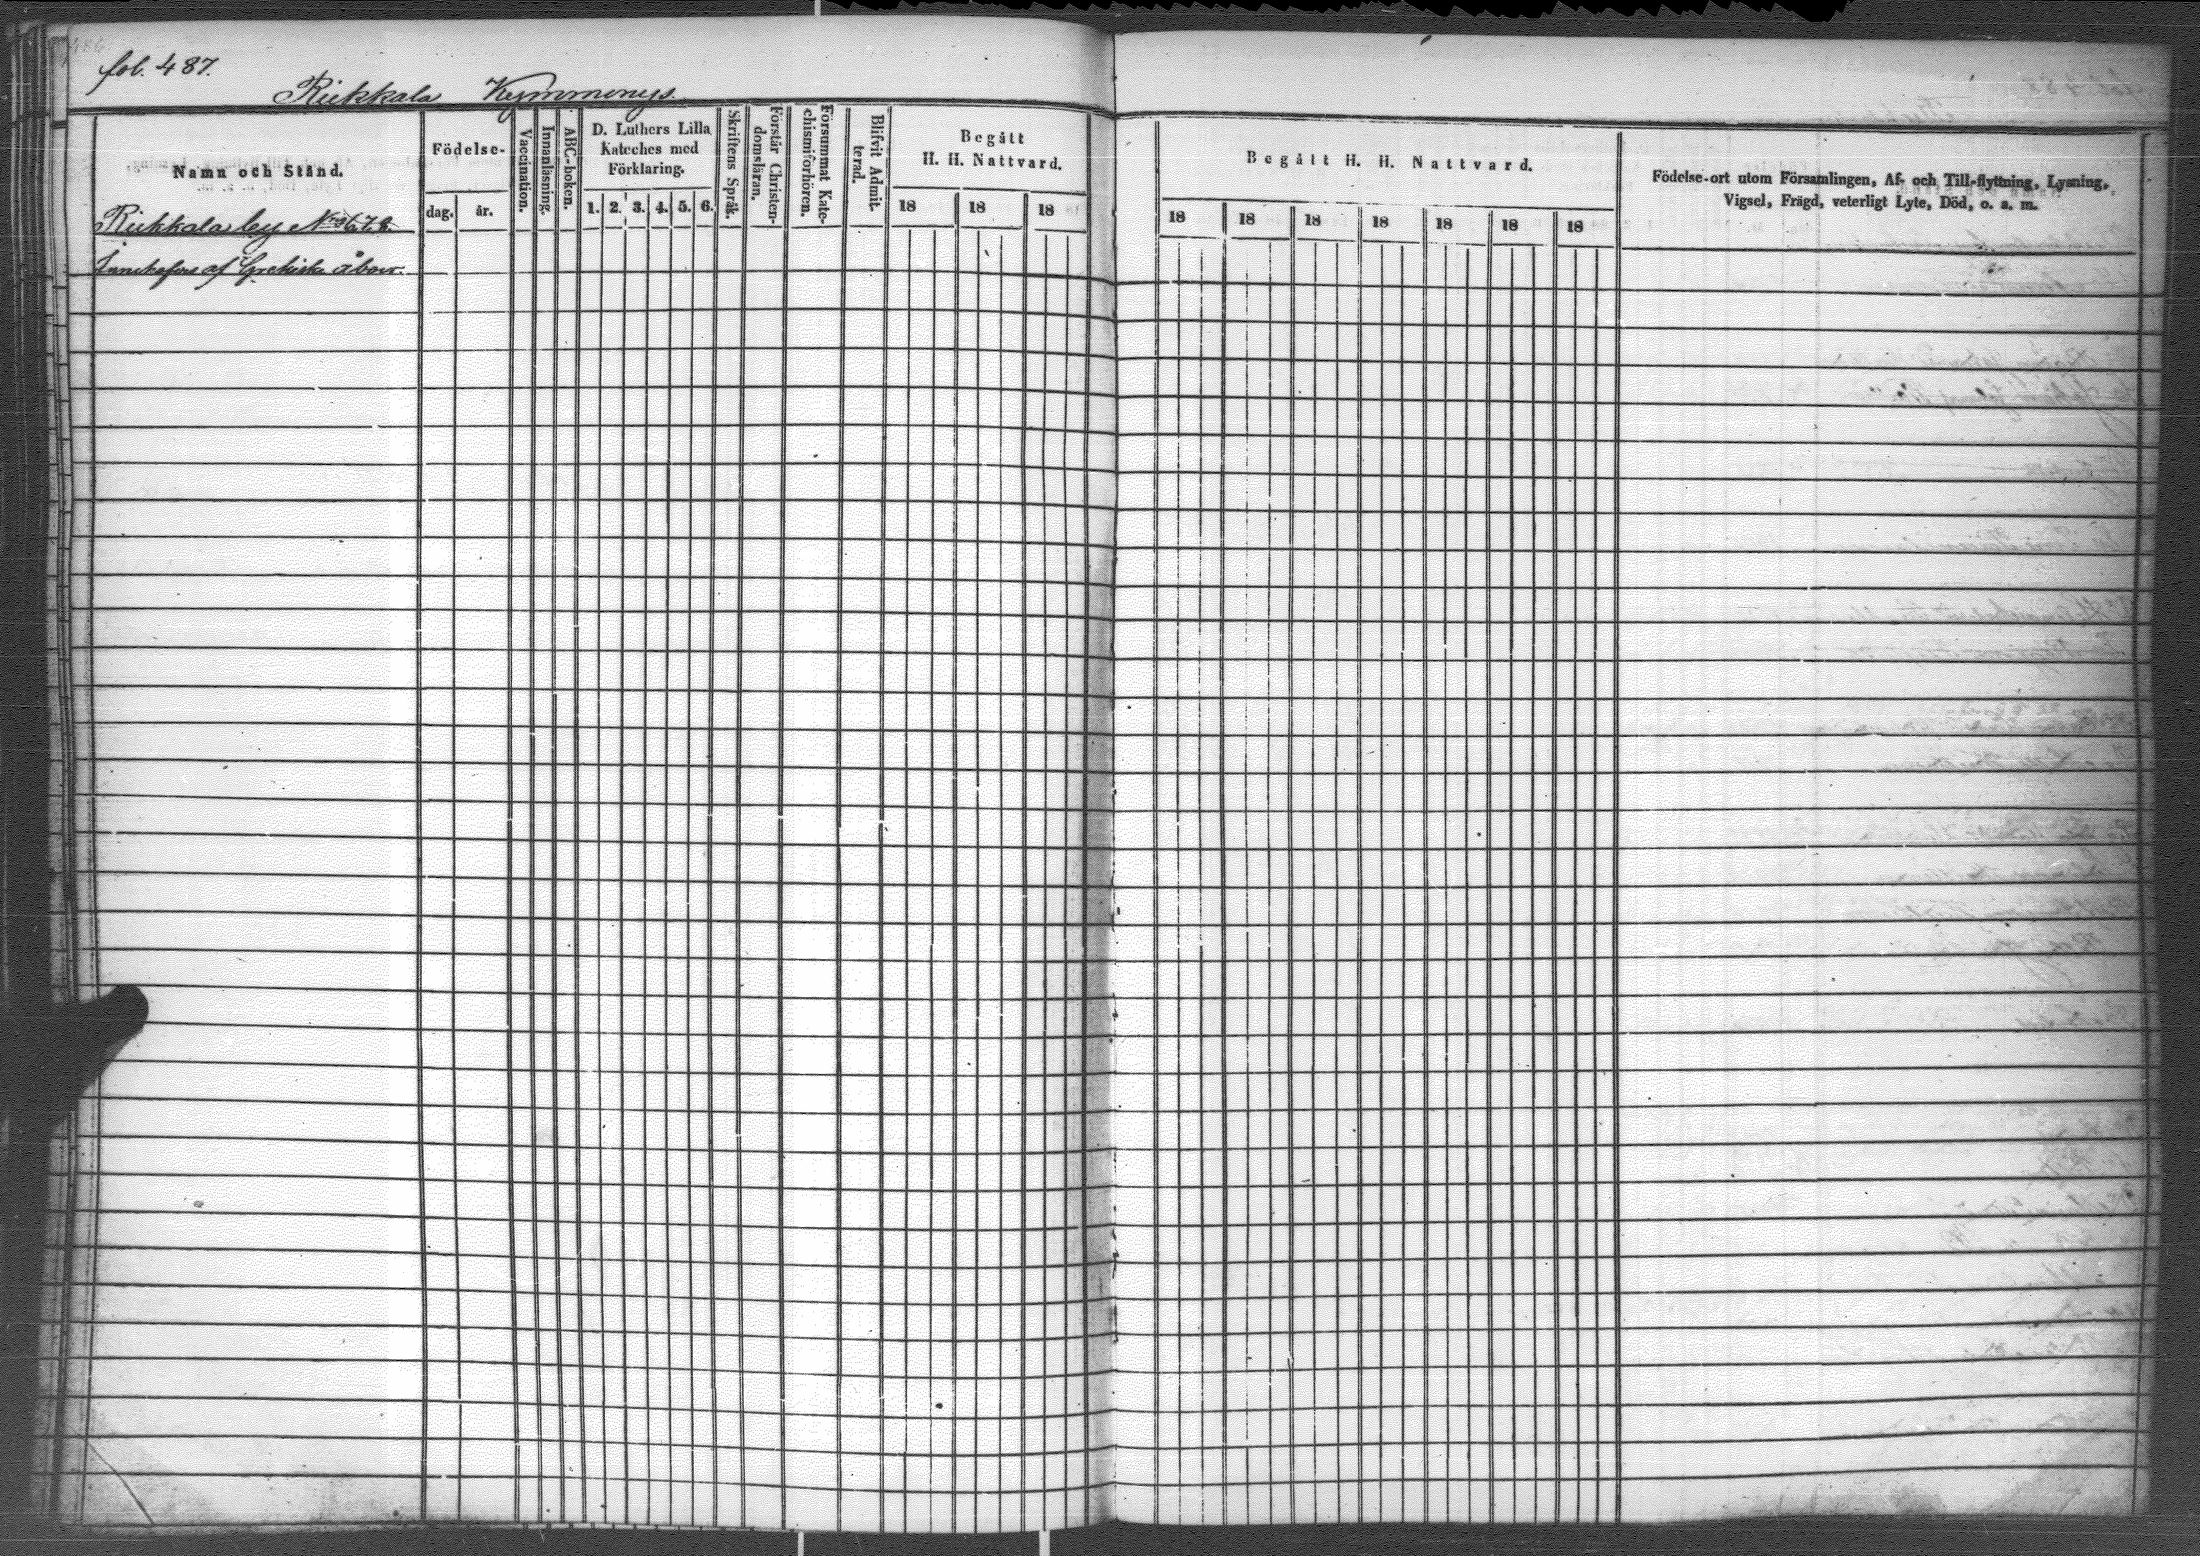 fol. 487.
Riikkala Kymmenys.
Namn och Stånd.
Födelse-
dag.
år.
Vaccination.
Innanläsning.
ABC-boken.
D. Luthers Lilla
Kateches med
Förklaring.
1. 2. 3. 4. 5. 6.
Skriftens Språk.
Förstår Christen-
domsläran.
Försummat Kate-
chismiförhören.
Blifvit Admit-
terad.
Begått
H. H. Nattvard.
18 18 18
Begått H. H. Nattvard.
18 18 18 18 18 18 18
Födelse-ort utom Församlingen, Af- och Till-flyttning, Lysning,
Vigsel, Frägd, veterligt Lyte, Död, o. s. m.
Riikkala by
Innehafves af Grekiska åboer.